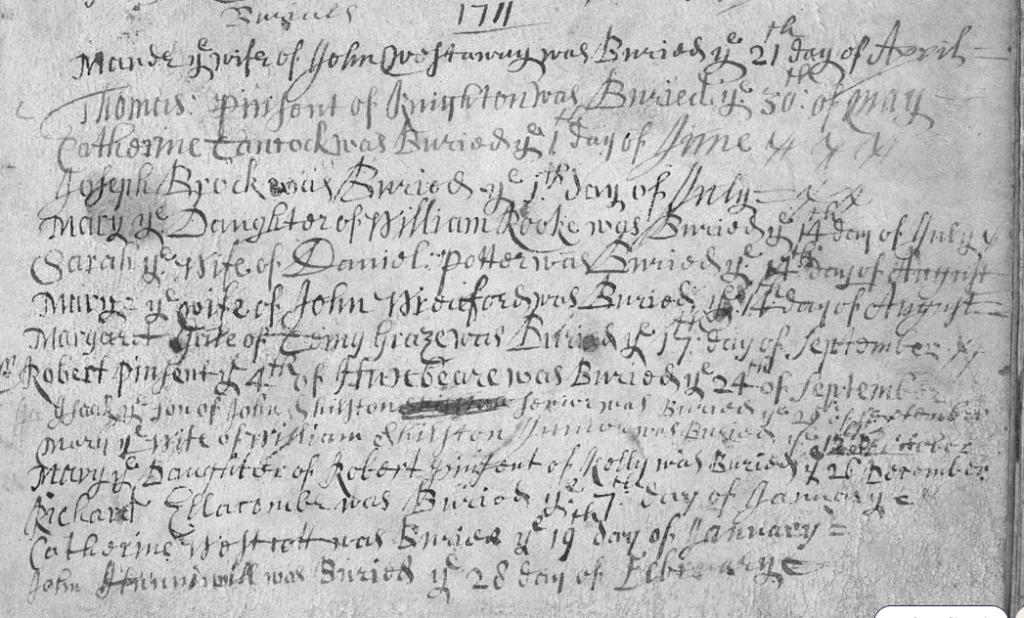 Buryals 1711
Maude ye wife of John Westaway was Buried ye 21th day of April
Thomas: pinsent of Knighton was Buried ye 30th: of may
Catherine Tancock was Buried ye 1th day of June x x x
Joseph Brock was Buried ye 1th day of July x x
Mary ye Daughter of William Rooke was Buried ye 14th day of July
Sarah ye wife of Daniel: Potter was Buried ye 14th day of August
Mary ye wife of John Wreaford was Buried ye 14 day of August
Margaret of Graze was Buried ye 17th day of September
Robert pinsent ye 4th of was Buried ye 24th of September
ye son of John Shilston senior was Buried ye September
Mary ye Wife of William Shilston Junior was Buried ye October
Mary ye Daughter of Robert pinsent of Kelly was Buried ye 26 December
Richard Ellacombe was Buried ye 7th day of January
Catherine Westcott was Buried ye 19th day of January
John was Buried ye 28 day of